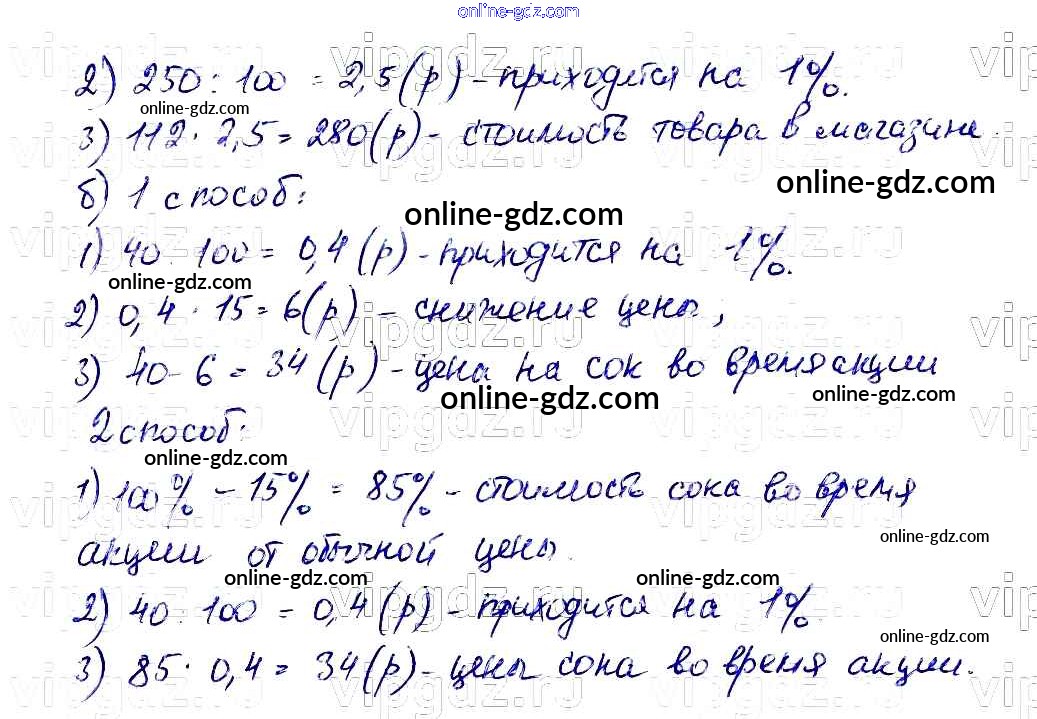 online-gdz.com
2) 250 : 100 = 2,5 (р) - приходится на 1%.
online-gdz.com
3) 112 · 2,5 = 280 (р) - стоимость товара в магазине.
online-gdz.com
б) 1 способ:
online-gdz.com
1) 40 : 100 = 0,4 (р) - приходится на 1%.
online-gdz.com
2) 0,4 · 15 = 6 (р) - снижение цены,
3) 40 - 6 = 34 (р) - цена на сок во время акции
online-gdz.com online-gdz.com
2 способ:
online-gdz.com
1) 100% - 15% = 85% - стоимость сока во время
online-gdz.com
акции от обычной цены.
online-gdz.com online-gdz.com
2) 40 : 100 = 0,4 (р) - приходится на 1%
online-gdz.com
3) 85 · 0,4 = 34 (р) - цена сока во время акции.
online-gdz.com